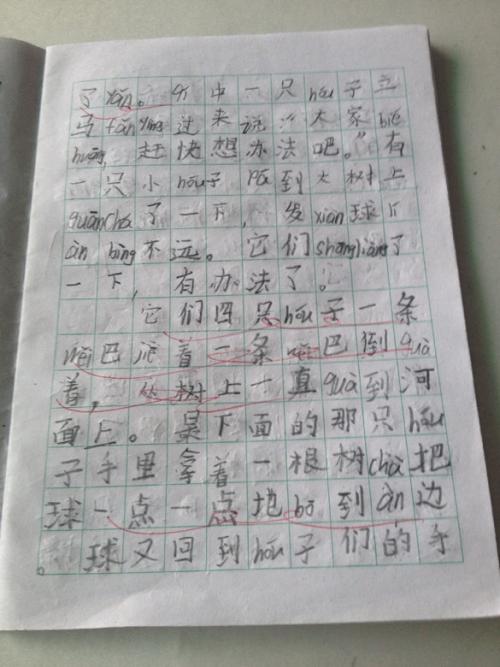 了yuán。其中一只hóu子立
马fǎnyìng过来说："大家bié
huāng,赶快想办法吧。"有
一只小hóu子pá到大树上
guānchá了一下,发xiàn球下
àn bìng不远。它们shāngliang了
一下,有办法了。
它们四只hóu子一条
尾巴派着一条尾巴倒guà
着,从树上一真guà到河
面上。最下面的那只hóu
子手里拿着一根树chà把
球一点一点地bō到àn边
球又回到hóu子们的手